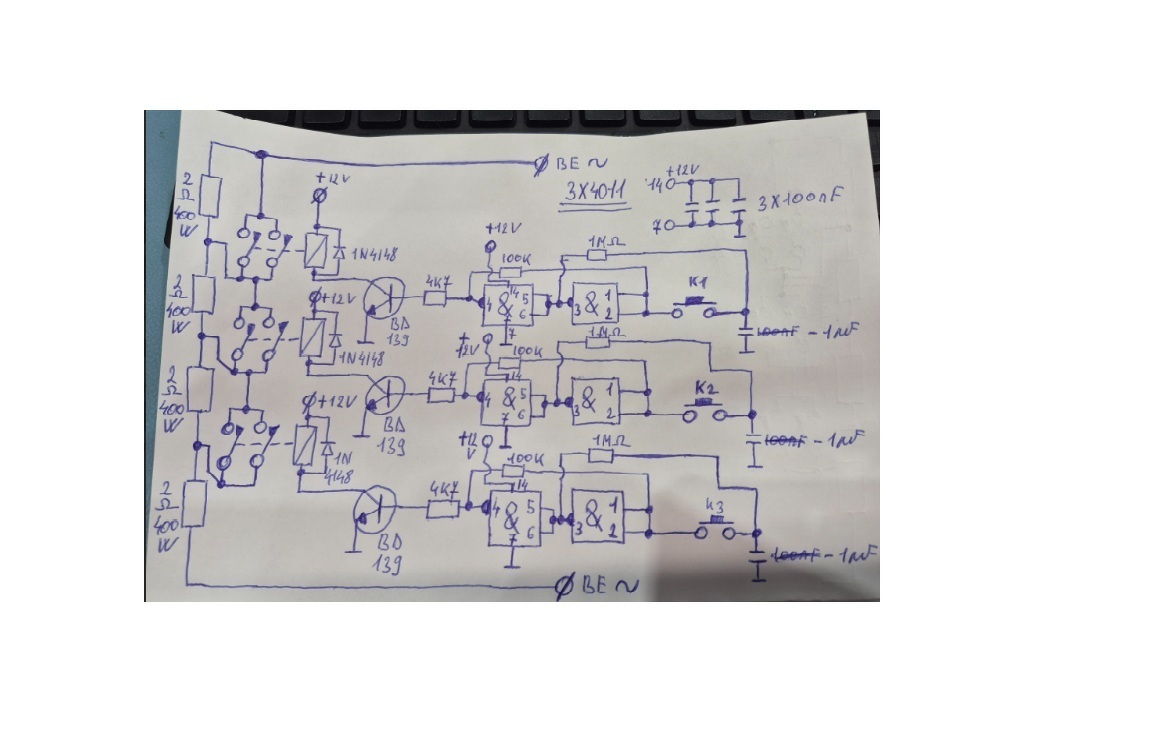 BE ~
3X4011
+12V
14
7
3X100nF
2
Ω
400
W
+12V
1N4148
BD
139
4K7
+12V
100K
4
&
14
5
6
7
1MΩ
3
&
1
2
K1
100nF - 1µF
2
Ω
400
W
+12V
1N4148
BD
139
4K7
+
12V
100K
4
&
14
5
6
7
1MΩ
3
&
1
2
K2
100nF - 1µF
2
Ω
400
W
+12V
1N
4148
BD
139
4K7
+12
V
100K
4
&
14
5
6
7
1MΩ
3
&
1
2
K3
100nF - 1µF
2
Ω
400
W
BE ~